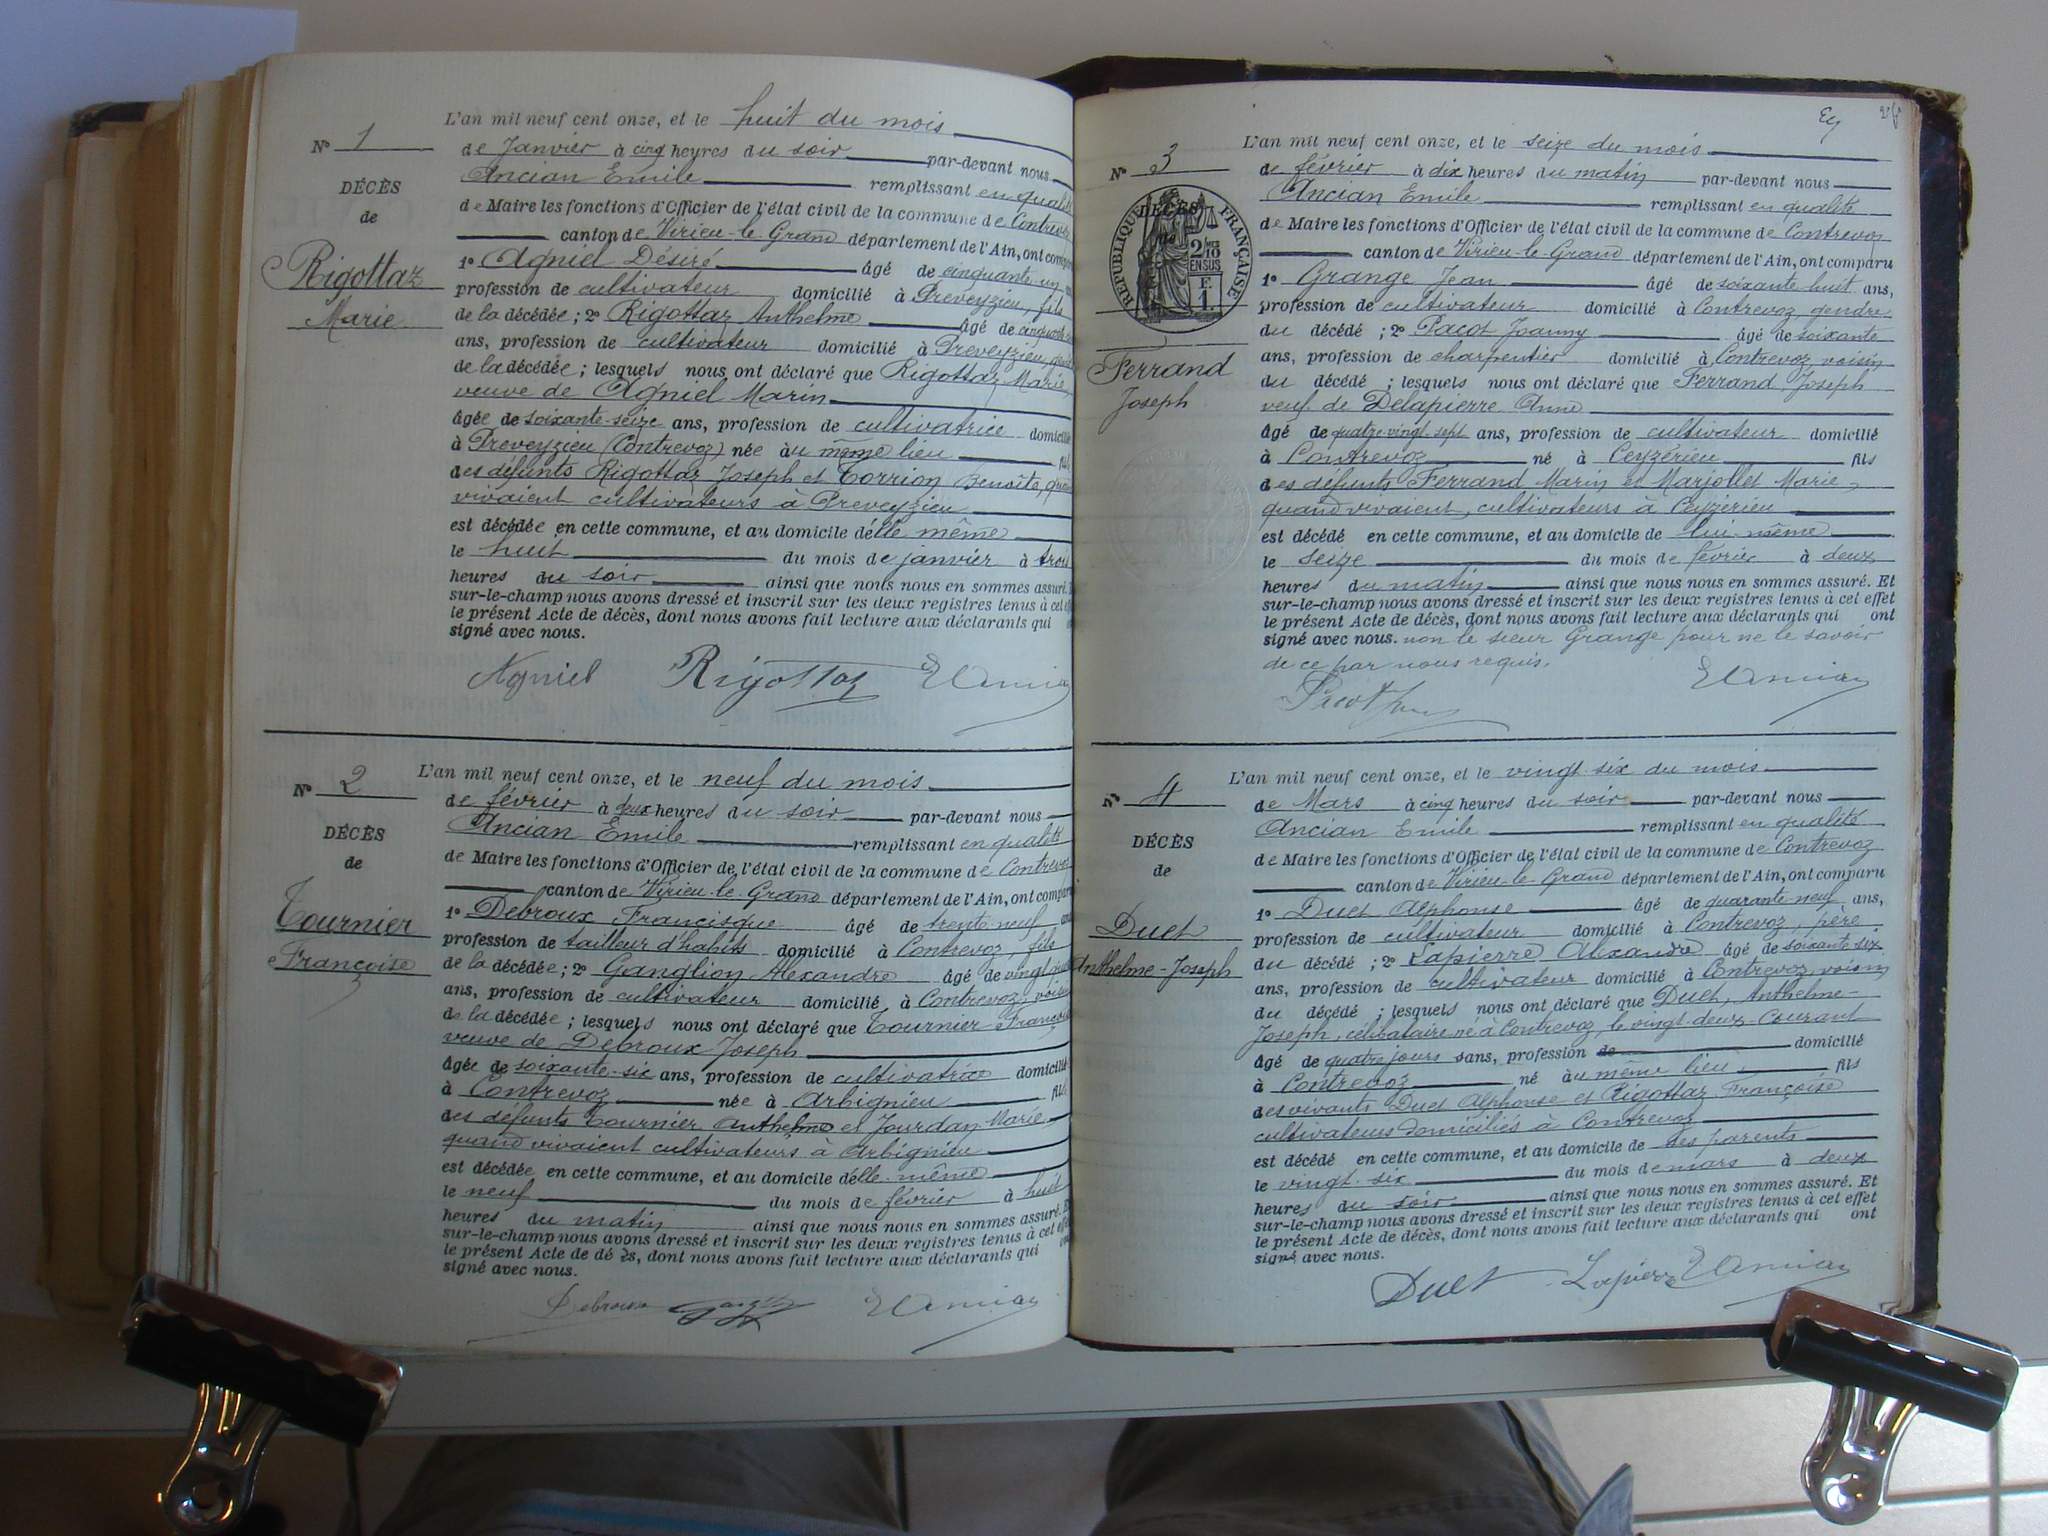 L'an mil neuf cent onze, et le huit du mois
N° 1
de Janvier à cinq heures du soir par-devant nous
DÉCÈS
Ancian Emile remplissant en qualité
de
de Maire les fonctions d'Officier de l'état civil de la commune de Contrevoz
canton de Virieu-le-Grand département de l'Ain, ont comparu
Rigottaz
1° Agniel Désiré âgé de cinquante-un
profession de cultivateur domicilié à Preveyzieu, fils
Marie
de la décédée ; 2° Rigottaz Anthelme âgé de
ans, profession de cultivateur domicilié à Preveyzieu
de la décédée ; lesquels nous ont déclaré que Rigottaz Marie
veuve de Agniel Marin
âgée de soixante-seize ans, profession de cultivatrice domicilié
à Preveyzieu (Contrevoz) née au même lieu
des défunts Rigottaz Joseph et Torrion Benoîte, quand
vivaient cultivateurs à Preveyzieu
est décédée en cette commune, et au domicile d'elle même
le huit du mois de janvier à trois
heures du soir ainsi que nous nous en sommes assuré.
sur-le-champ nous avons dressé et inscrit sur les deux registres tenus à cet effet
le présent Acte de décès, dont nous avons fait lecture aux déclarants qui
signé avec nous.
Agniel Rigottaz EAncian
L'an mil neuf cent onze, et le neuf du mois
N° 2
de février à deux heures du soir par-devant nous
DÉCÈS
Ancian Emile remplissant en qualité
de
de Maire les fonctions d'Officier de l'état civil de la commune de Contrevoz
canton de Virieu-le-Grand département de l'Ain, ont comparu
Tournier
1° Debroux Francisque âgé de trente-neuf ans
profession de tailleur d'habits domicilié à Contrevoz, fils
Françoise
de la décédée ; 2° Ganglion Alexandre âgé de
ans, profession de cultivateur domicilié à Contrevoz, voisin
de la décédée ; lesquels nous ont déclaré que Tournier Françoise
veuve de Debroux Joseph
âgée de soixante-six ans, profession de cultivatrice domicilié
à Contrevoz née à Arbignieu
des défunts Tournier Anthelme et Jourdan Marie
quand vivaient cultivateurs à Arbignieu
est décédée en cette commune, et au domicile d'elle-même
le neuf du mois de février à huit
heures du matin ainsi que nous nous en sommes assuré.
sur-le-champ nous avons dressé et inscrit sur les deux registres tenus à cet effet
le présent Acte de décès, dont nous avons fait lecture aux déclarants qui
signé avec nous.
Debroux EAncian
L'an mil neuf cent onze, et le seize du mois
N° 3
de février à dix heures du matin par-devant nous
DÉCÈS
Ancian Emile remplissant en qualité
RÉPUBLIQUE FRANÇAISE
2/10 EN SUS
F. 1
de Maire les fonctions d'Officier de l'état civil de la commune de Contrevoz
canton de Virieu-le-Grand département de l'Ain, ont comparu
1° Grange Jean âgé de soixante-huit ans,
profession de cultivateur domicilié à Contrevoz, gendre
du décédé ; 2° Pacot Joanny âgé de soixante
Ferrand
ans, profession de charpentier domicilié à Contrevoz, voisin
Joseph
du décédé ; lesquels nous ont déclaré que Ferrand, Joseph
veuf de Delapierre Anne
âgé de quatre-vingt-sept ans, profession de cultivateur domicilié
à Contrevoz né à Ceyzérieu fils
des défunts Ferrand Marin et Marjollet Marie,
quand vivaient, cultivateurs à Ceyzérieu
est décédé en cette commune, et au domicile de lui-même
le seize du mois de février à deux
heures du matin ainsi que nous nous en sommes assuré. Et
sur-le-champ nous avons dressé et inscrit sur les deux registres tenus à cet effet
le présent Acte de décès, dont nous avons fait lecture aux déclarants qui ont
signé avec nous. non le sieur Grange pour ne le savoir
de ce par nous requis.
EAncian
L'an mil neuf cent onze, et le vingt-six du mois
N° 4
de Mars à cinq heures du soir par-devant nous
DÉCÈS
Ancian Emile remplissant en qualité
de
de Maire les fonctions d'Officier de l'état civil de la commune de Contrevoz
canton de Virieu-le-Grand département de l'Ain, ont comparu
Duet
1° Duet Alphonse âgé de quarante-neuf ans,
profession de cultivateur domicilié à Contrevoz, père
Anthelme-Joseph
du décédé ; 2° Lapierre Alexandre âgé de soixante-six
ans, profession de cultivateur domicilié à Contrevoz, voisin
du décédé ; lesquels nous ont déclaré que Duet, Anthelme-
Joseph, célibataire né à Contrevoz, le vingt-deux courant
âgé de quatre jours sans, profession de domicilié
à Contrevoz né au même lieu, fils
des vivants Duet Alphonse et Rigottaz Françoise
cultivateurs domiciliés à Contrevoz
est décédé en cette commune, et au domicile de ses parents
le vingt-six du mois de mars à deux
heures du soir ainsi que nous nous en sommes assuré. Et
sur-le-champ nous avons dressé et inscrit sur les deux registres tenus à cet effet
le présent Acte de décès, dont nous avons fait lecture aux déclarants qui ont
signé avec nous.
Duet Lapierre EAncian